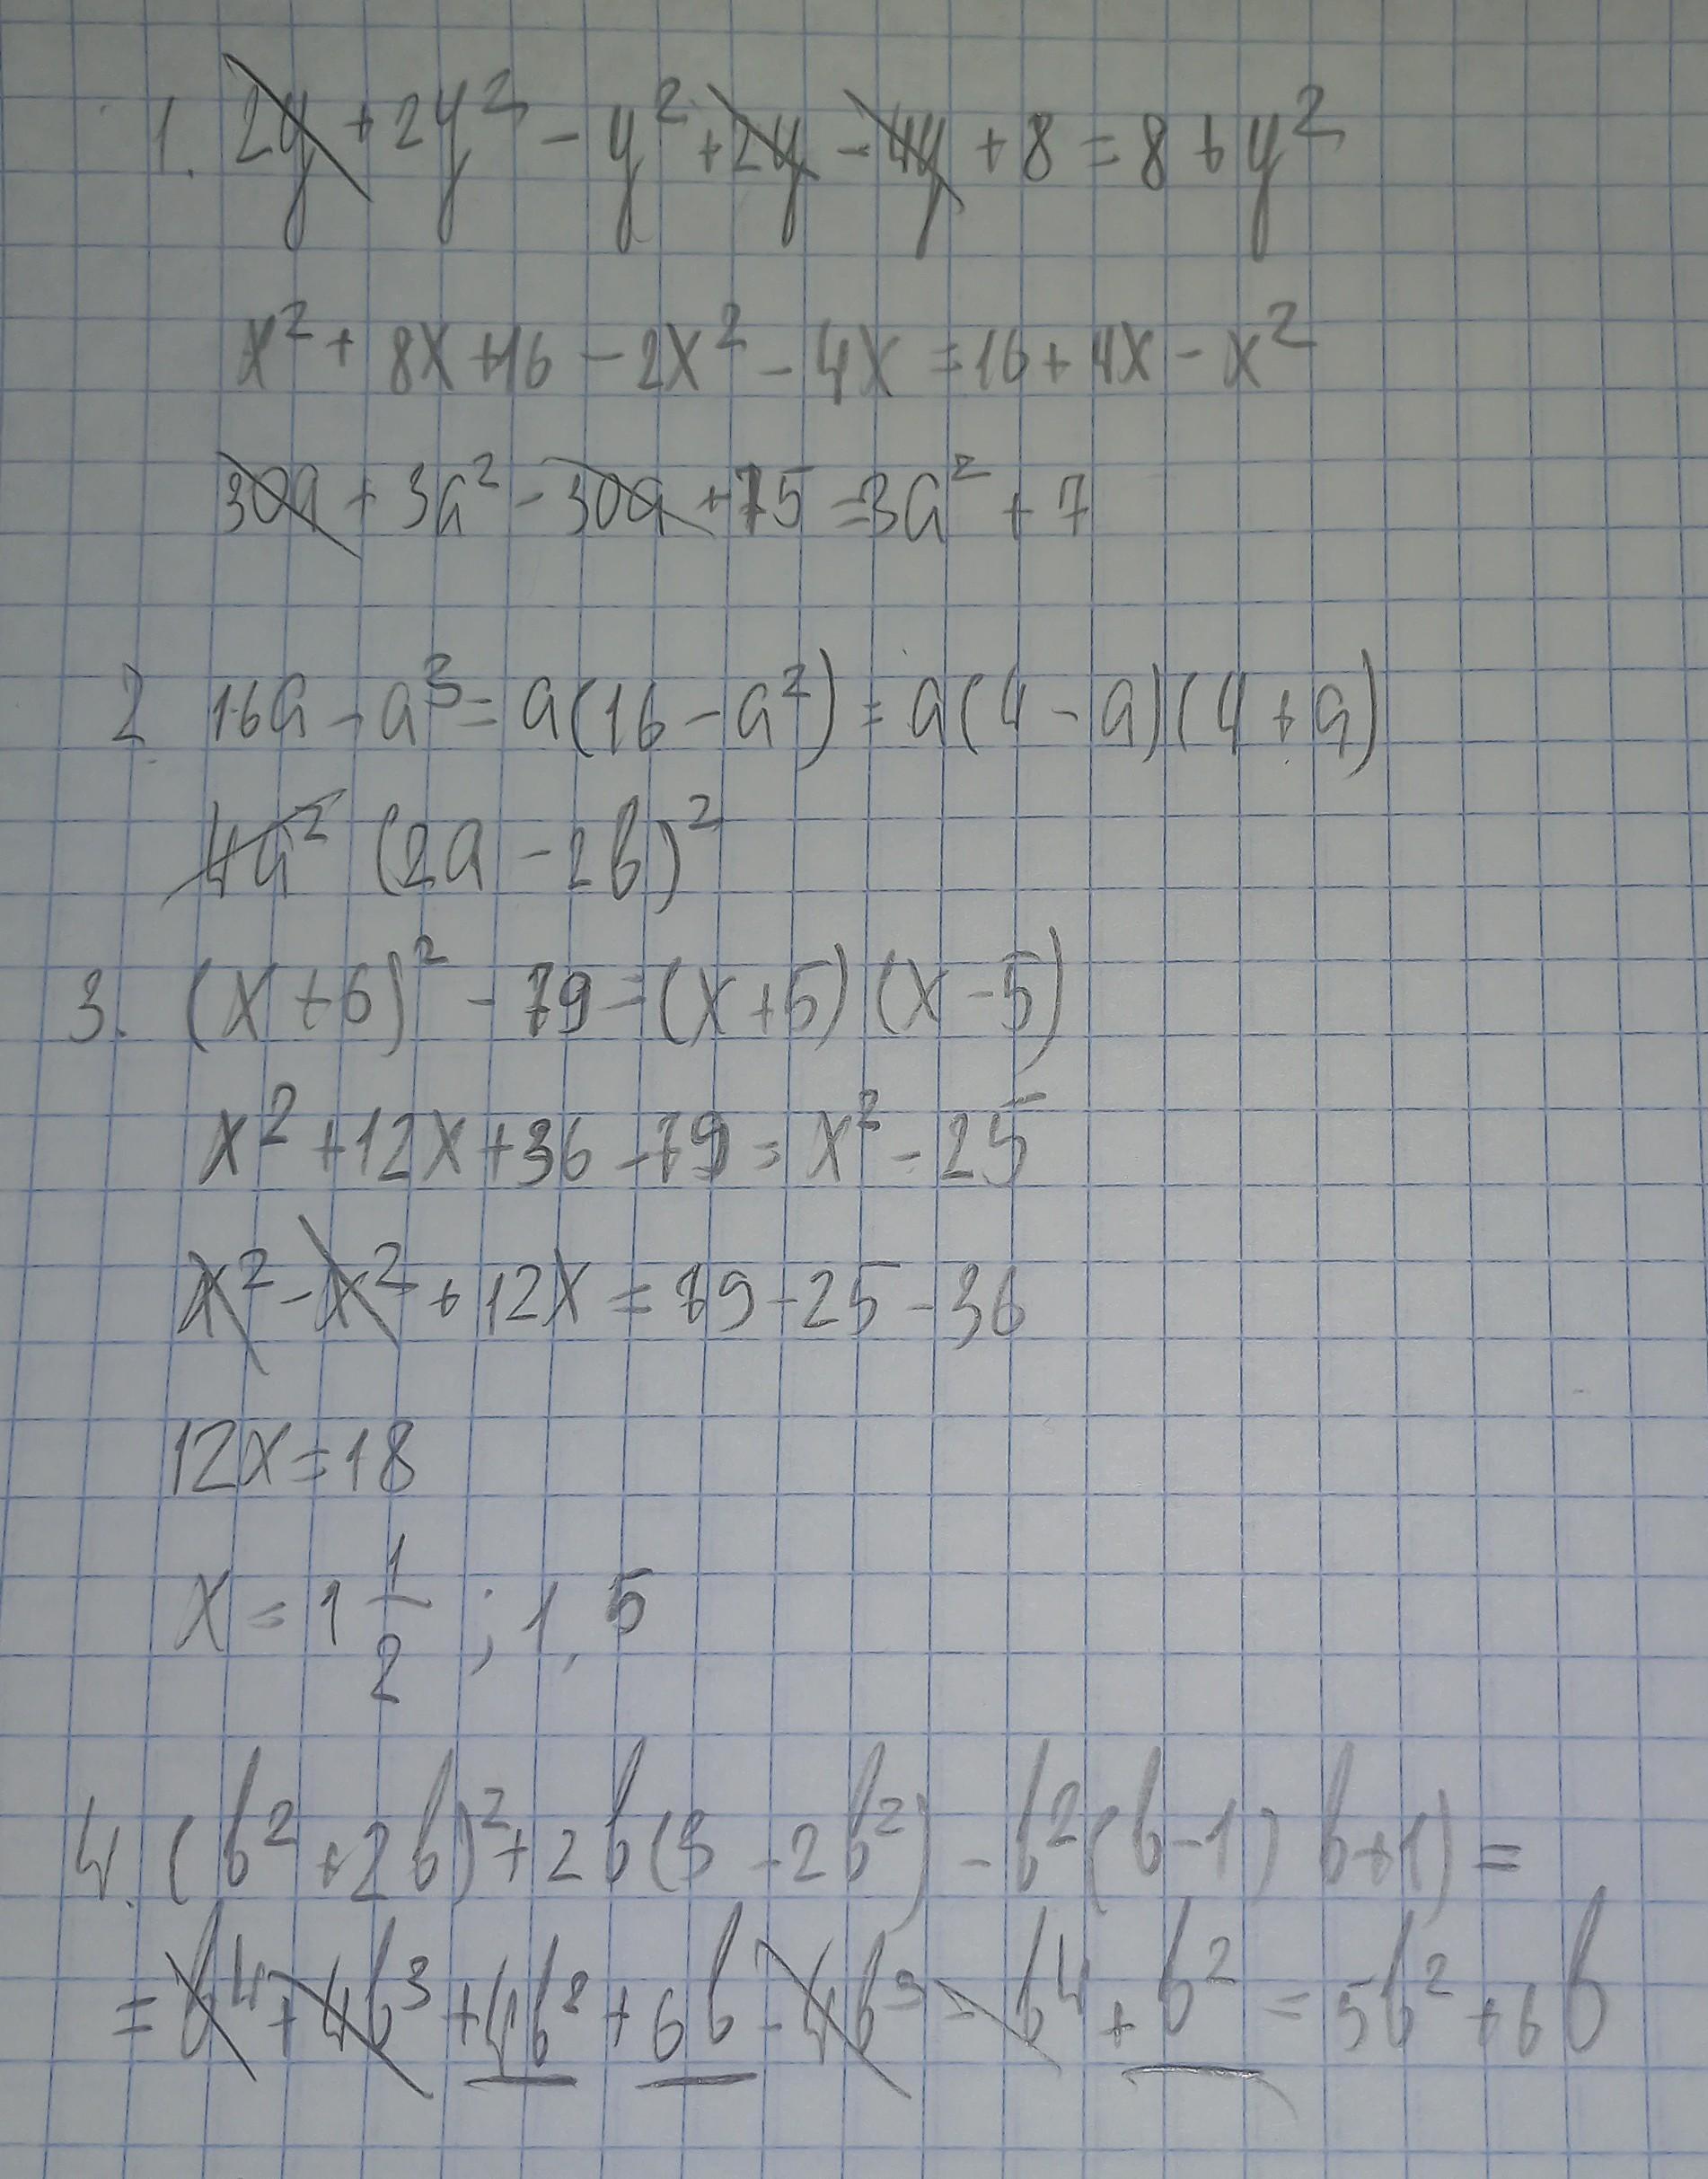 1. 2y + 2y² - y² + 2y - 4y + 8 = 8 + y²
x² + 8x + 16 - 2x² - 4x = 16 + 4x - x²
30a + 3a² - 30a + 75 = 3a² + 7
2. 16a - a³ = a(16 - a²) = a(4 - a)(4 + a)
4a² (2a - 2b)²
3. (x + 6)² - 79 = (x + 5)(x - 5)
x² + 12x + 36 - 79 = x² - 25
x² - x² + 12x = 79 - 25 - 36
12x = 18
x = 1 1/2 ; 1,5
4. (b² + 2b)² + 2b(3 - 2b²) - b²(b - 1) b + 1) =
= b⁴ + 4b³ + 4b² + 6b - 4b³ - b⁴ + b² = 5b² + 6b